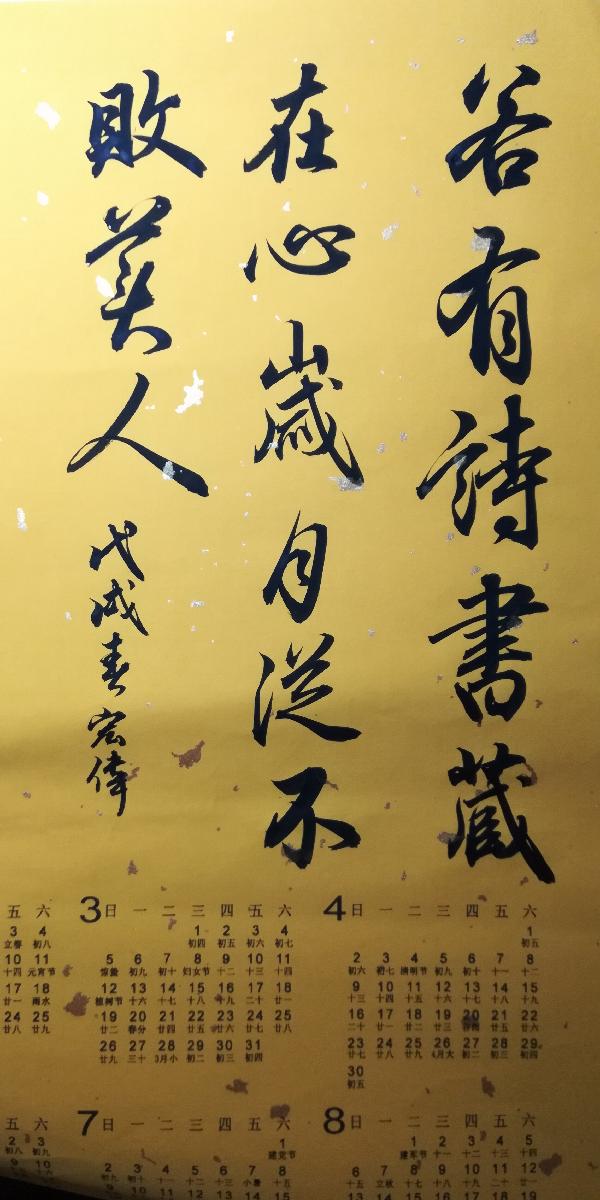 若有詩書藏
在心歲月從不
敗美人
戊戌春宏偉
五 六
3 4
立春 初八
10 11
十四 元宵节
17 18
廿一 雨水
24 25
廿八 廿九
3 日 一 二 三 四 五 六
1 2 3 4
初四 初五 初六 初七
5 6 7 8 9 10 11
惊蛰 初九 初十 妇女节 十二 十三 十四
12 13 14 15 16 17 18
植树节 十六 十七 十八 十九 二十 廿一
19 20 21 22 23 24 25
廿二 春分 廿四 廿五 廿六 廿七 廿八
26 27 28 29 30 31
廿九 三十 3月小 初二 初三 初四
4 日 一 二 三 四 五 六
1
初五
2 3 4 5 6 7 8
初六 初七 清明节 初九 初十 十一 十二
9 10 11 12 13 14 15
十三 十四 十五 十六 十七 十八 十九
16 17 18 19 20 21 22
二十 廿一 廿二 廿三 谷雨 廿五 廿六
23 24 25 26 27 28 29
廿七 廿八 廿九 4月大 初二 初三 初四
30
初五
五 六
2 3
初八 初九
9 10
7 日 一 二 三 四 五 六
1
建党节
2 3 4 5 6 7 8
小暑 十五
8 日 一 二 三 四 五 六
1 2 3 4 5
建军节 十一 十二 十三 十四
6 7 8 9 10 11 12
十五 立秋 十七 十八 十九 二十 廿一